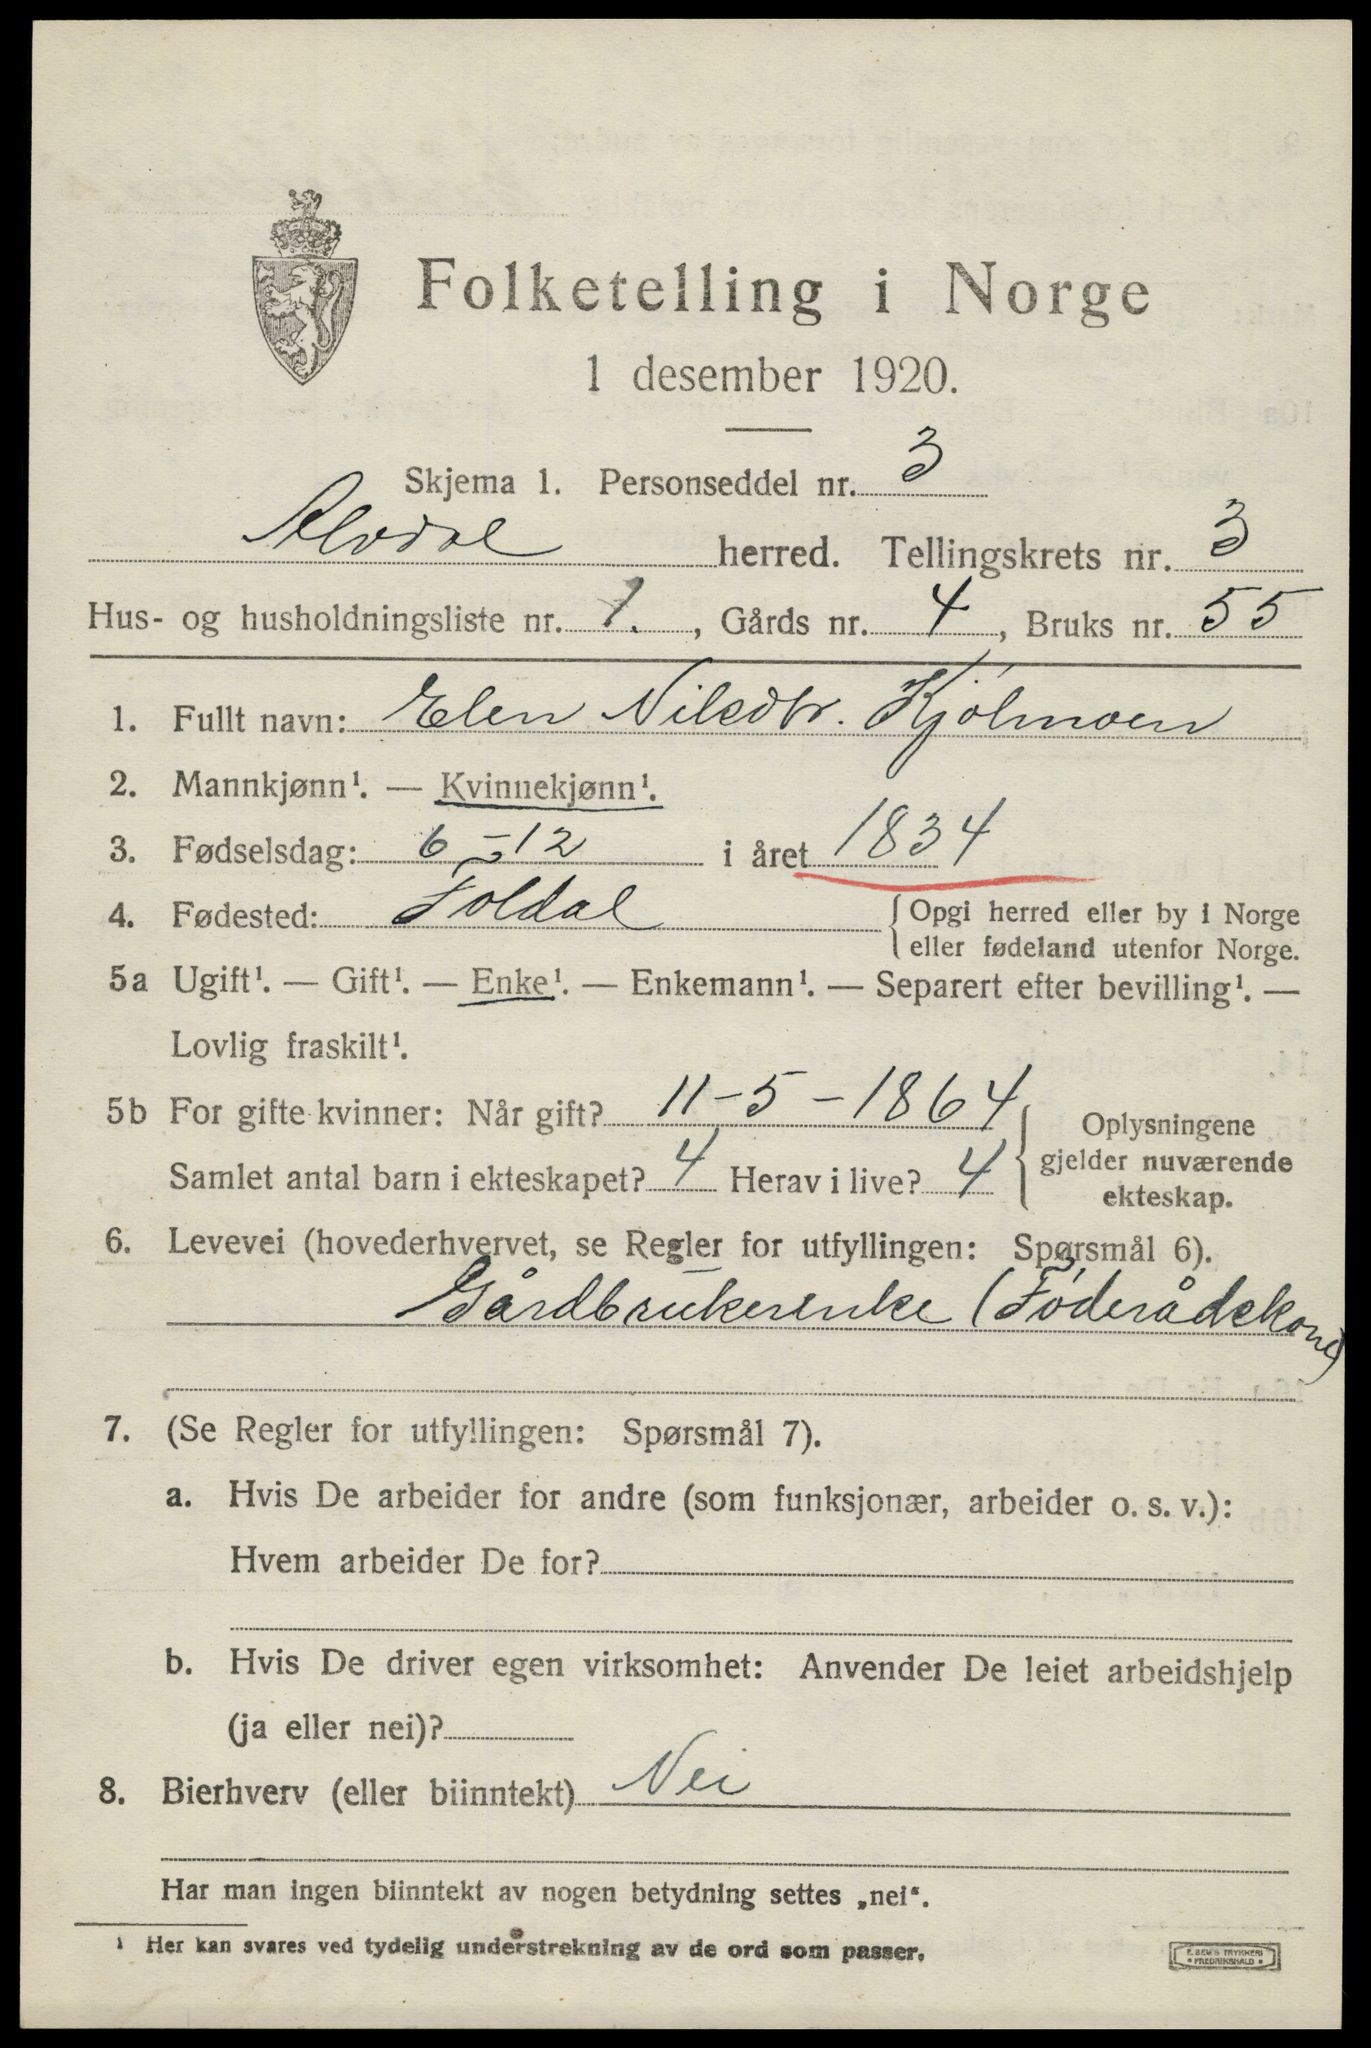 Folketelling i Norge
1 desember 1920.
Skjema 1. Personseddel nr. 3
Alvdal herred. Tellingskrets nr. 3
Hus- og husholdningsliste nr. 1., Gårds nr. 4, Bruks nr. 55
1. Fullt navn: Elen Nilsdtr. Kjölmoen
2. Mannkjønn¹. — Kvinnekjønn¹.
3. Fødselsdag: 6 - 12 i året 1834
4. Fødested: Foldal {Opgi herred eller by i Norge
eller fødeland utenfor Norge.
5a Ugift¹. — Gift¹. — Enke¹. — Enkemann¹. — Separert efter bevilling¹. —
Lovlig fraskilt¹.
5b For gifte kvinner: Når gift? 11-5-1864
Samlet antal barn i ekteskapet? 4 Herav i live? 4
Oplysningene
gjelder nuværende
ekteskap.
6. Levevei (hovederhvervet, se Regler for utfyllingen: Spørsmål 6).
Gårdbrukerenke (Föderådskone)
7. (Se Regler for utfyllingen: Spørsmål 7).
a. Hvis De arbeider for andre (som funksjonær, arbeider o. s. v.):
Hvem arbeider De for?
b. Hvis De driver egen virksomhet: Anvender De leiet arbeidshjelp
(ja eller nei)?
8. Bierhverv (eller biinntekt) Nei
Har man ingen biinntekt av nogen betydning settes „nei“.
¹ Her kan svares ved tydelig understrekning av de ord som passer.
E. SEM'S TRYKKERI
• FREDRIKSHALD •